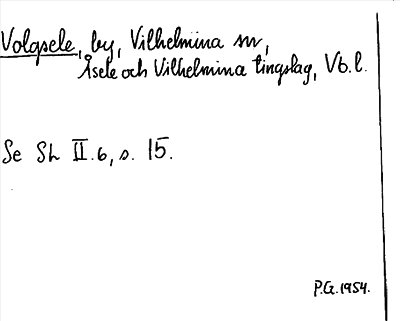 Volgsele, by, Vilhelmina sn,
Åsele och Vilhelmina tingslag, Vb.l.
Se Sh II.6, s. 15.
P.G. 1954.